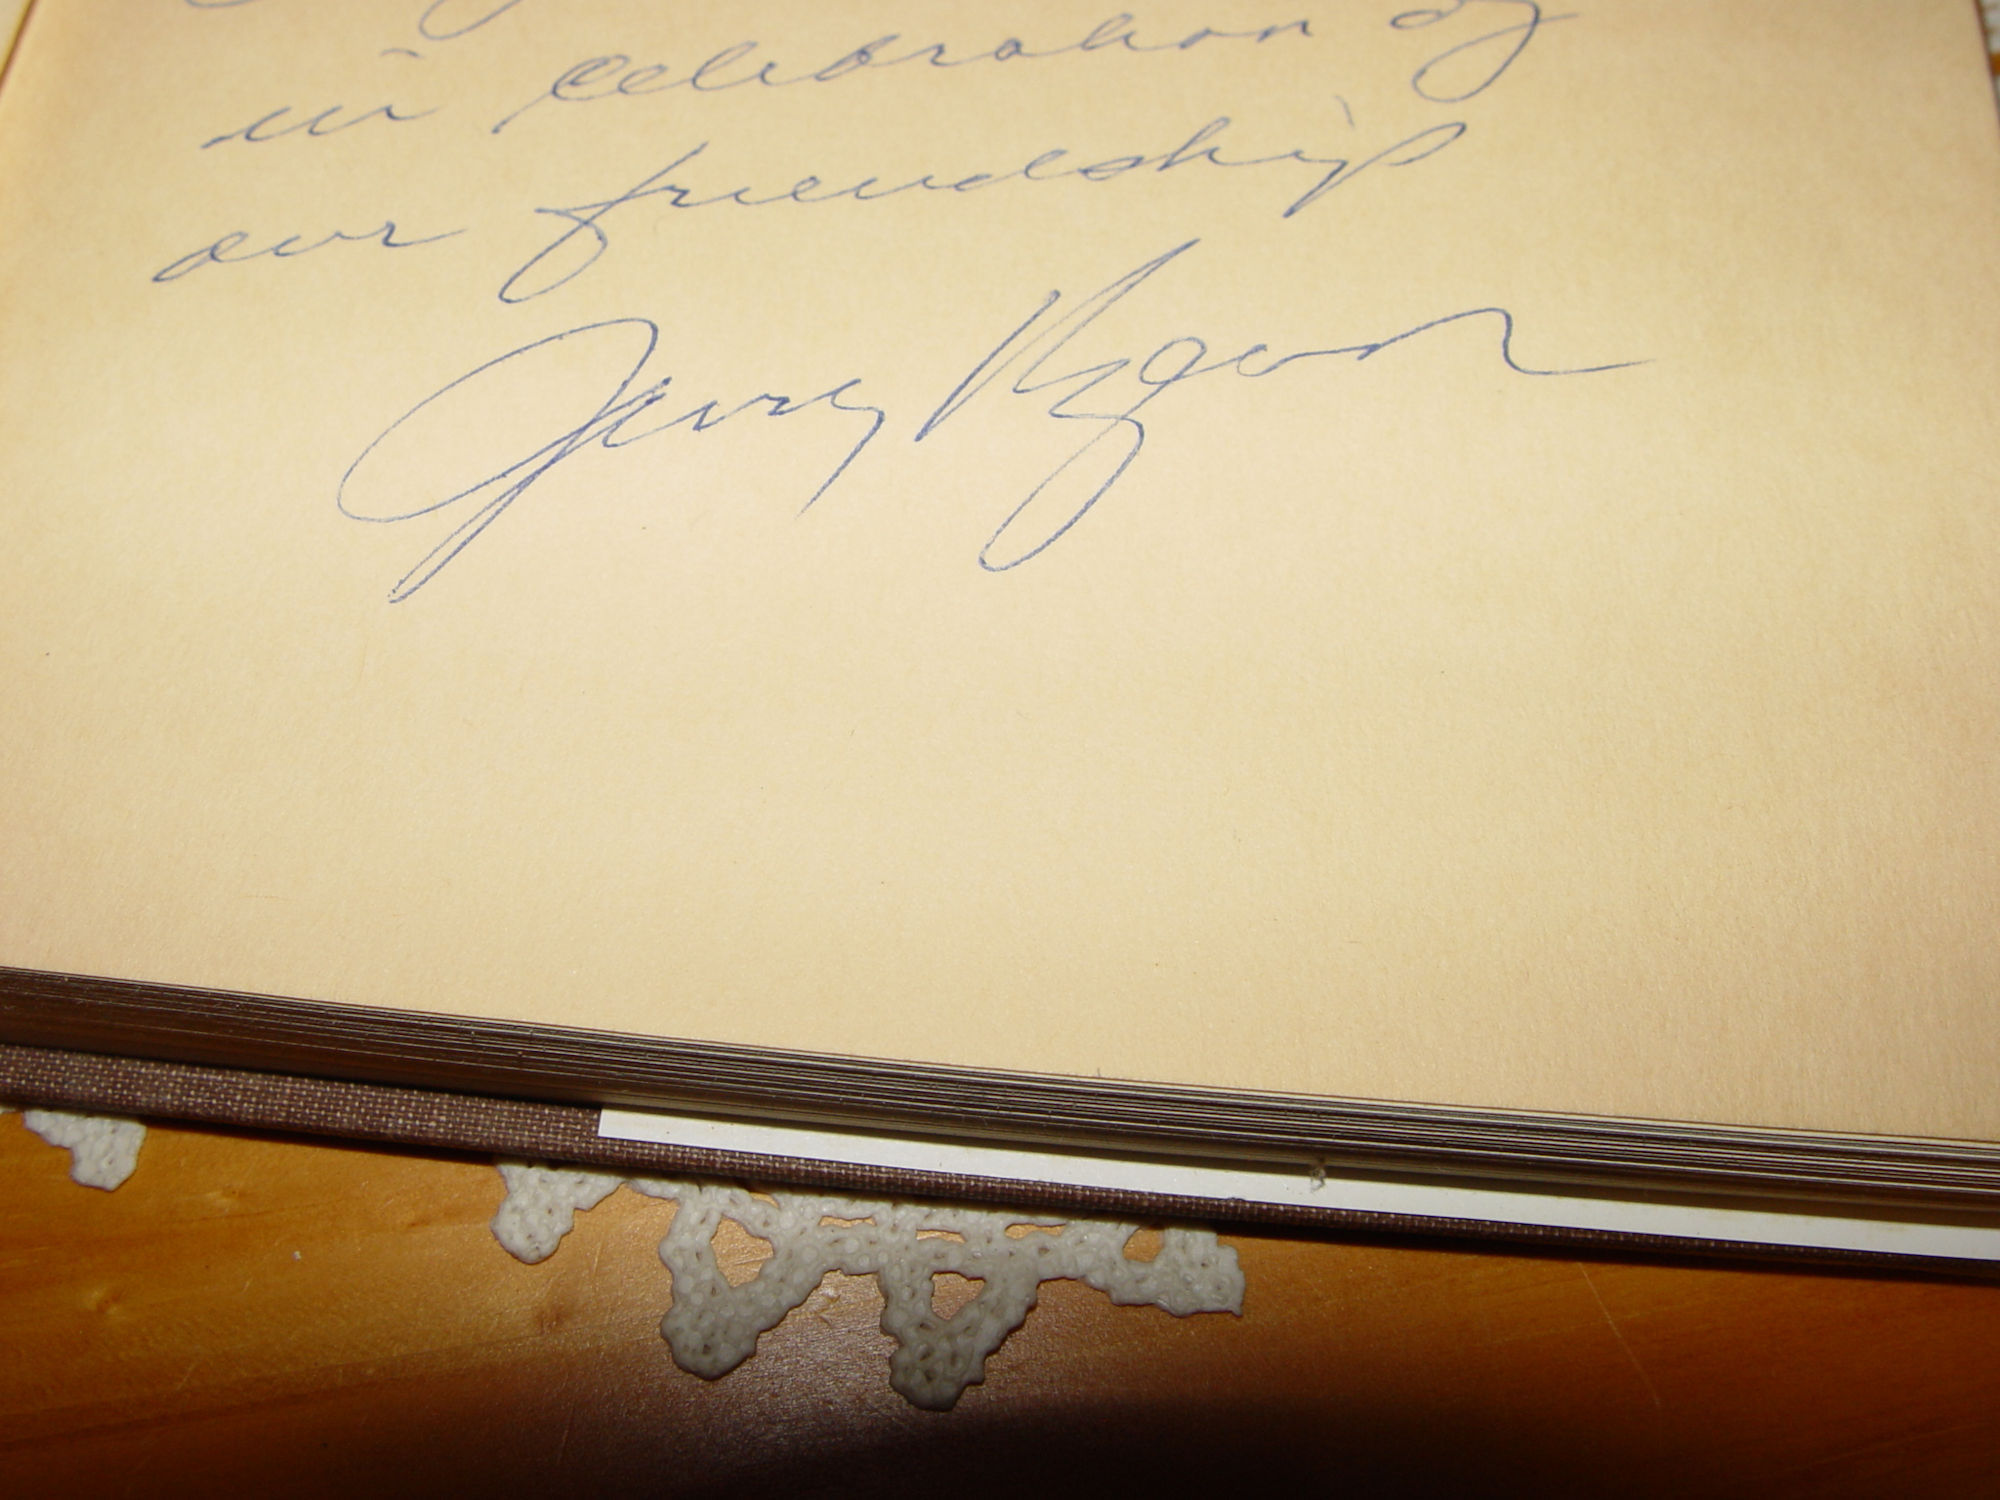 in celebration of
our friendship
Jerry